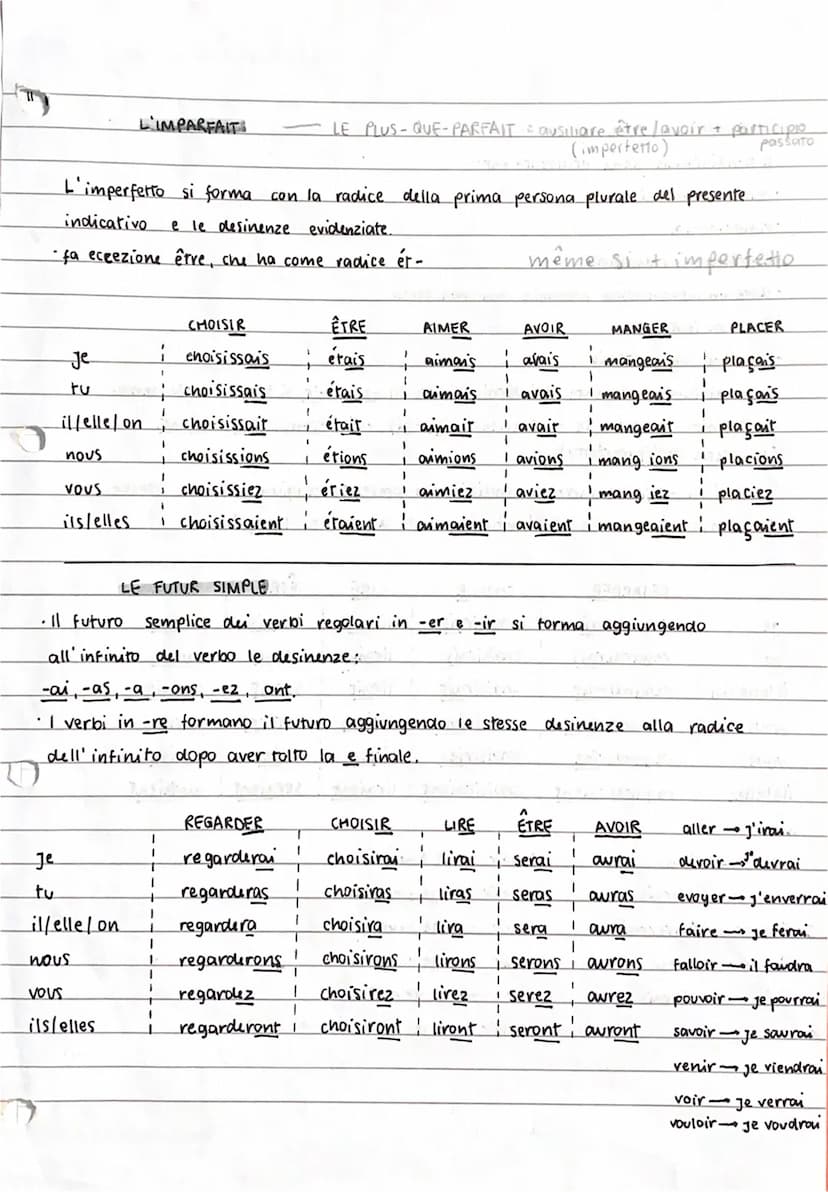 L'IMPARFAIT — LE PLUS-QUE-PARFAIT : ausiliare être/avoir + participio passato
(imperfetto)
L'imperfetto si forma con la radice della prima persona plurale del presente
indicativo e le desinenze evidenziate.
· fa eccezione être, che ha come radice ét- même si + imperfetto
CHOISIR ÊTRE AIMER AVOIR MANGER PLACER
Je choisissais étais aimais avais mangeais plaçais
tu choisissais étais aimais avais mangeais plaçais
il/elle/on choisissait était aimait avait mangeait plaçait
nous choisissions étions aimions avions mang ions placions
vous choisissiez étiez aimiez aviez mang iez placiez
ils/elles choisissaient étaient aimaient avaient mangeaient plaçaient
LE FUTUR SIMPLE
· Il futuro semplice dei verbi regolari in -er e -ir si forma aggiungendo
all'infinito del verbo le desinenze:
-ai, -as, -a, -ons, -ez, ont.
· I verbi in -re formano il futuro aggiungendo le stesse desinenze alla radice
dell'infinito dopo aver tolto la e finale.
REGARDER CHOISIR LIRE ÊTRE AVOIR aller → j'irai.
Je regarderai choisirai lirai serai aurai devoir → je devrai
tu regarderas choisiras liras seras auras evoyer → j'enverrai
il/elle/on regardera choisira lira sera aura faire → je ferai
nous regarderons choisirons lirons serons aurons falloir → il faudra
vous regardez choisirez lirez serez aurez pouvoir → je pourrai
ils/elles regarderont choisiront liront seront auront savoir → je saurai
venir → je viendrai
voir → je verrai
vouloir → je voudrai